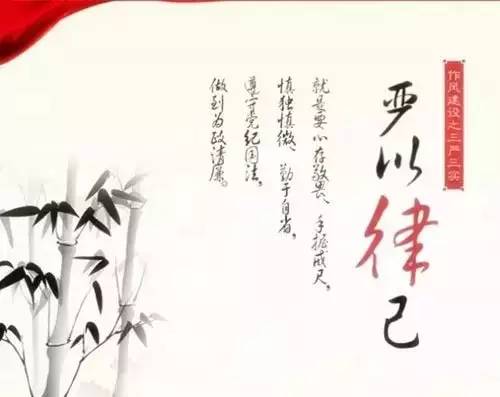 作风建设之三严三实
严以律己
就是要心存敬畏、手握戒尺，
慎独慎微、勤于自省，
遵守党纪国法，
做到为政清廉。